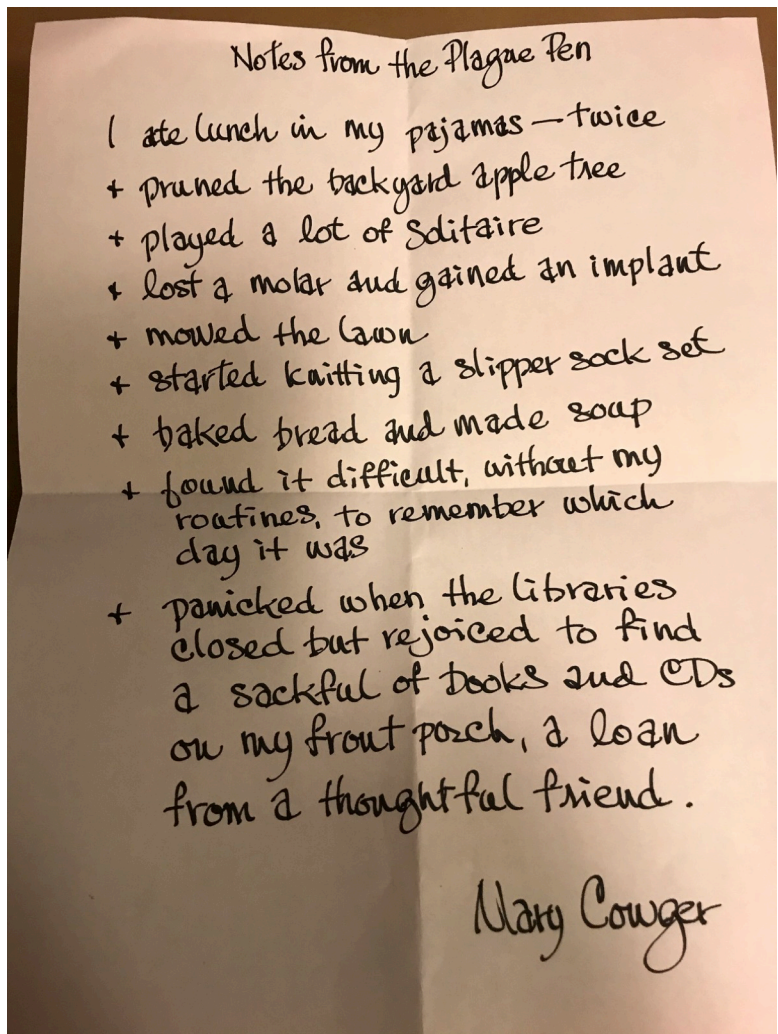 Notes from the Plague Pen
I ate lunch in my pajamas — twice
+ pruned the backyard apple tree
+ played a lot of Solitaire
+ lost a molar and gained an implant
+ mowed the lawn
+ started knitting a slipper sock set
+ baked bread and made soup
+ found it difficult, without my
routines, to remember which
day it was
+ panicked when the libraries
closed but rejoiced to find
a sackful of books and CDs
on my front porch, a loan
from a thoughtful friend.
Mary Cowger